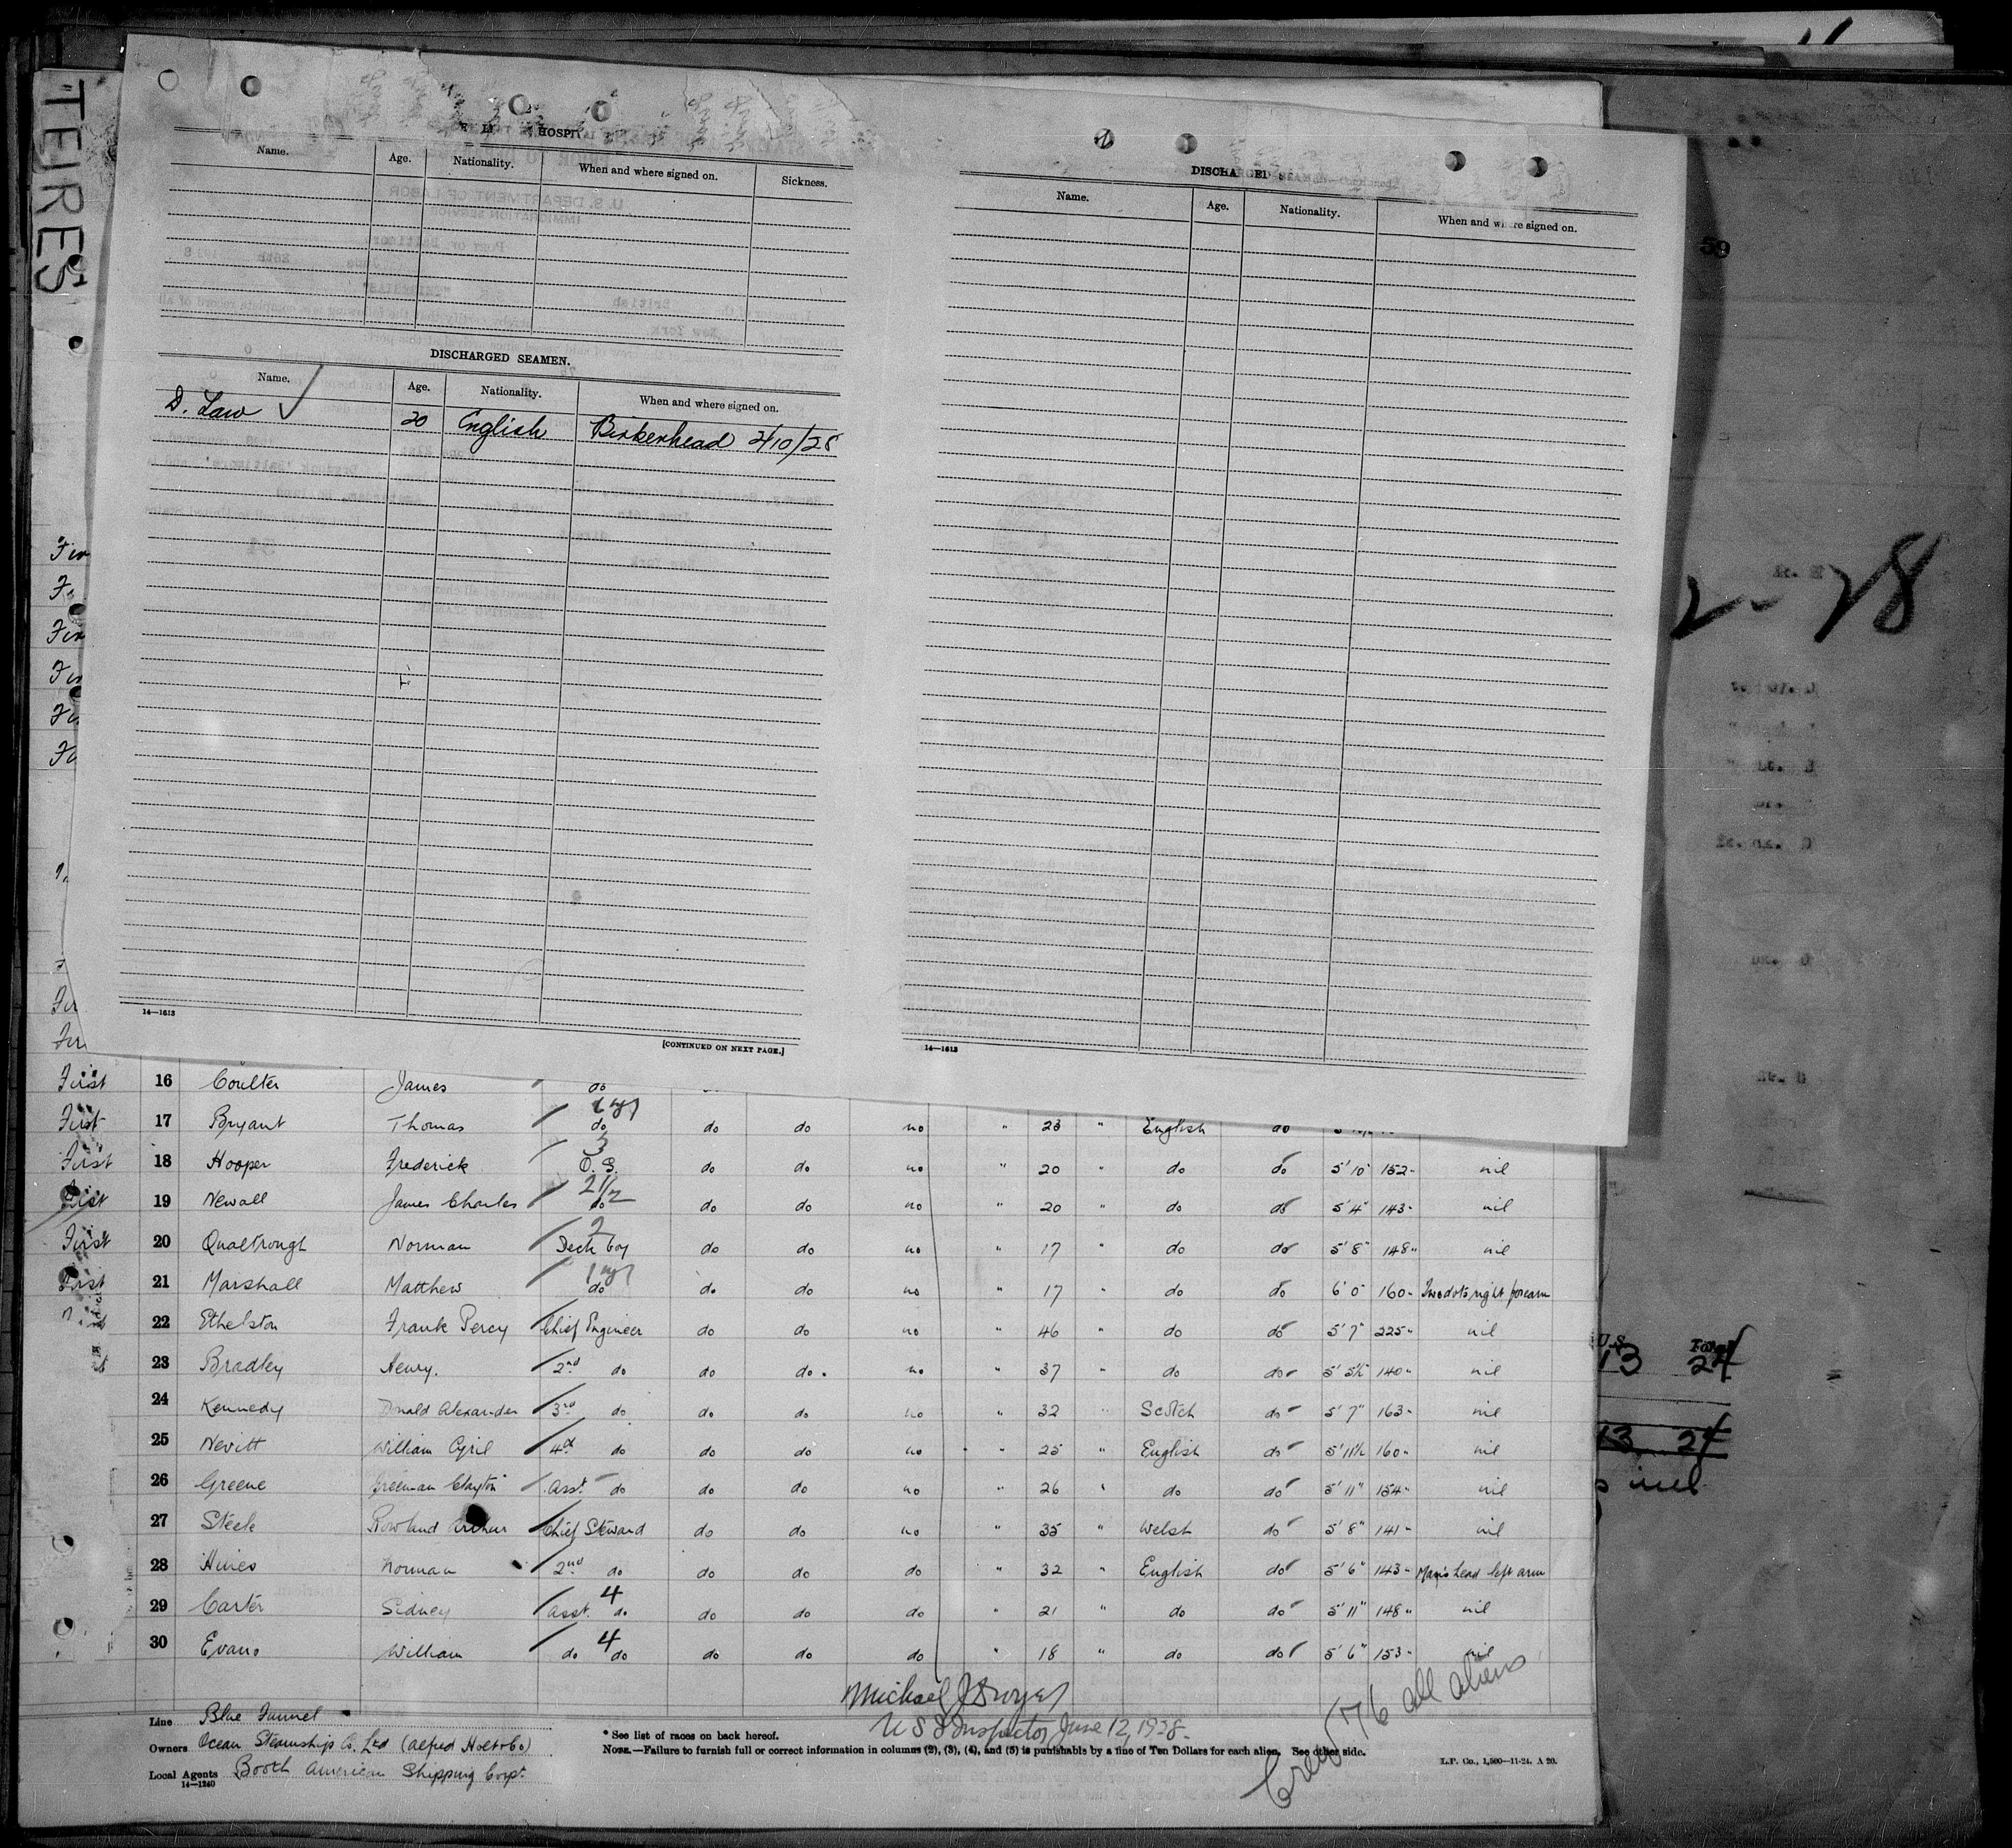 TEIRES
HOSPI
Name. Age. Nationality. When and where signed on. Sickness.
DISCHARGED SEAMEN.
Name. Age. Nationality. When and where signed on.
D. Law 20 English Birkenhead 2/10/28
14—1613
[CONTINUED ON NEXT PAGE.]
DISCHA GED
Name. Age. Nationality. When and where signed on.
14—1613
59
2-28
First 16 Coulter James do
First 17 Bryant Thomas do do do no " 23 " English do
First 18 Hooper Frederick O.S. do do no " 20 " do do 5'10" 152 nil
First 19 Newall James Charles do do do no " 20 " do do 5'4" 143 nil
First 20 Qualtrough Norman Deck boy do do no " 17 " do do 5'8" 148 nil
First 21 Marshall Matthew do do do no " 17 " do do 6'0" 160 Two dots right forearm
22 Ethelston Frank Percy Chief Engineer do do no " 46 " do do 5'7" 225 nil
23 Bradley Henry. 2nd do do do. no " 37 " do do 5'5½ 140 nil
24 Kennedy Donald Alexander 3rd do do do no " 32 " Scotch do 5'7" 163 nil
25 Nevitt William Cyril 4th do do do no " 25 " English do 5'11½ 160 nil
26 Greene Freeman Clayton Asst. do do do no " 26 " do do 5'11" 154 nil
27 Steele Rowland Arthur Chief Steward do do no " 35 " Welsh do 5'8" 141 nil
28 Hines Norman 2nd do do do do " 32 " English do 5'6" 143 Man's head left arm
29 Carter Sidney asst. 4 do do do do " 21 " do do 5'11" 148 nil
30 Evans William do 4 do do do do " 18 " do do 5'6" 153 nil
U.S.
13 24
13 24
Michael J Dwyer
U S I Inspector June 12, 1928.
Crew 76 all aliens
Line Blue Funnel
Owners Ocean Steamship Co. Ltd (Alfred Holt & Co)
Local Agents Booth American Shipping Corpt.
14—1240
* See list of races on back hereof.
NOTE.—Failure to furnish full or correct information in columns (2), (3), (4), and (5) is punishable by a fine of Ten Dollars for each alien. See other side.
L.P. Co., 1,500—11-24. A 20.